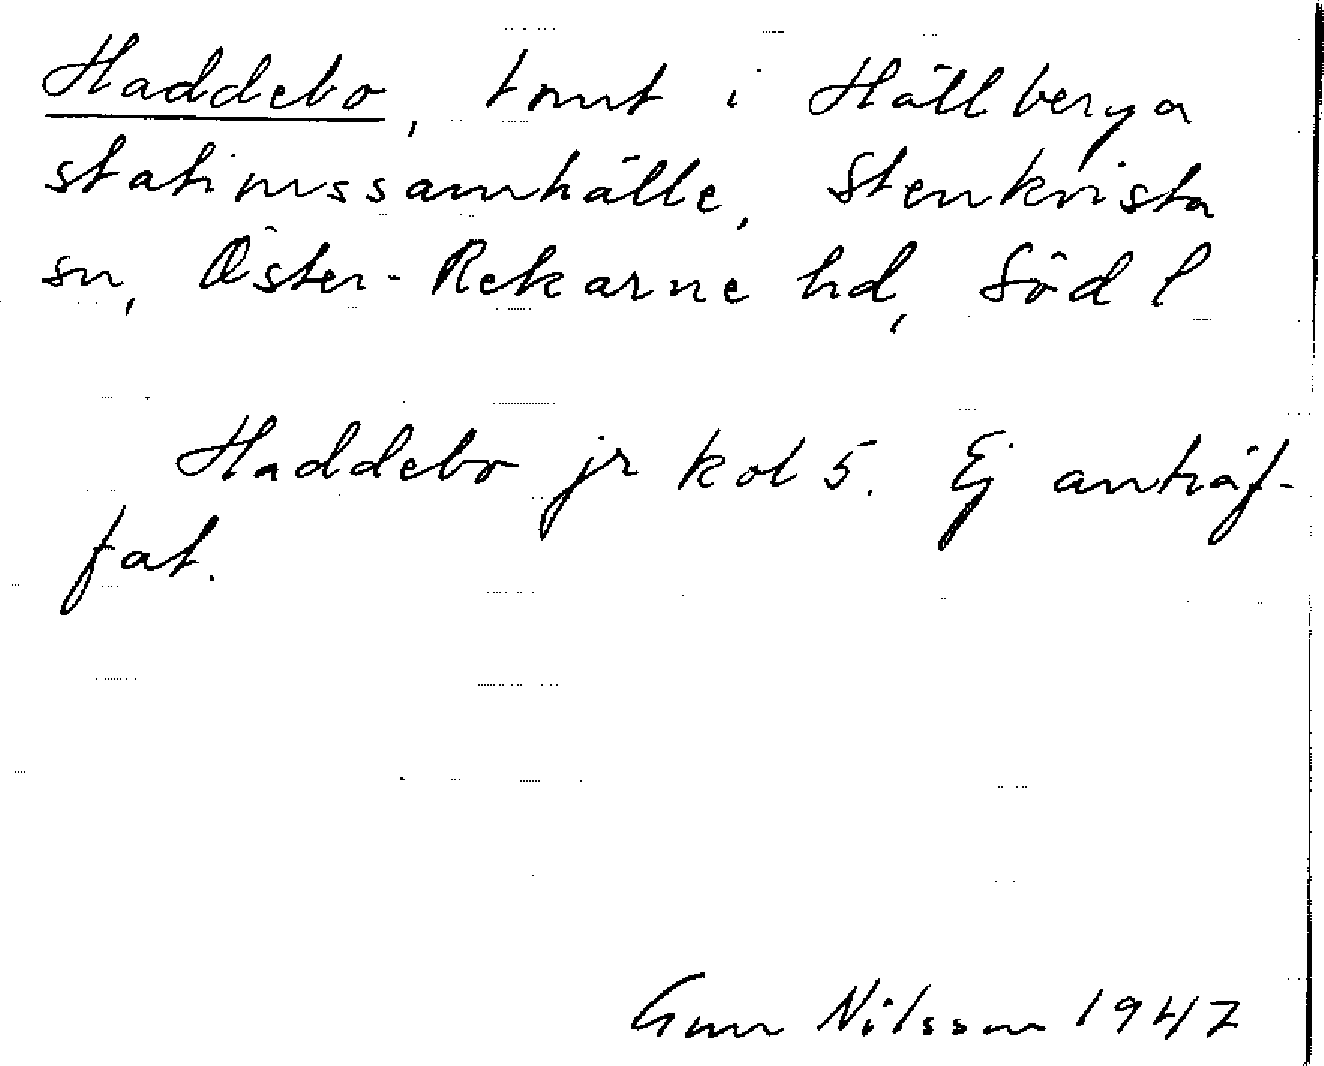 Haddebo, tomt i Hällberga
stationssamhälle, Stenkvista
sn, Öster-Rekarne hd, Söd l
Haddebo jr kol 5. Ej anträf-
fat.
Gun Nilsson 1947